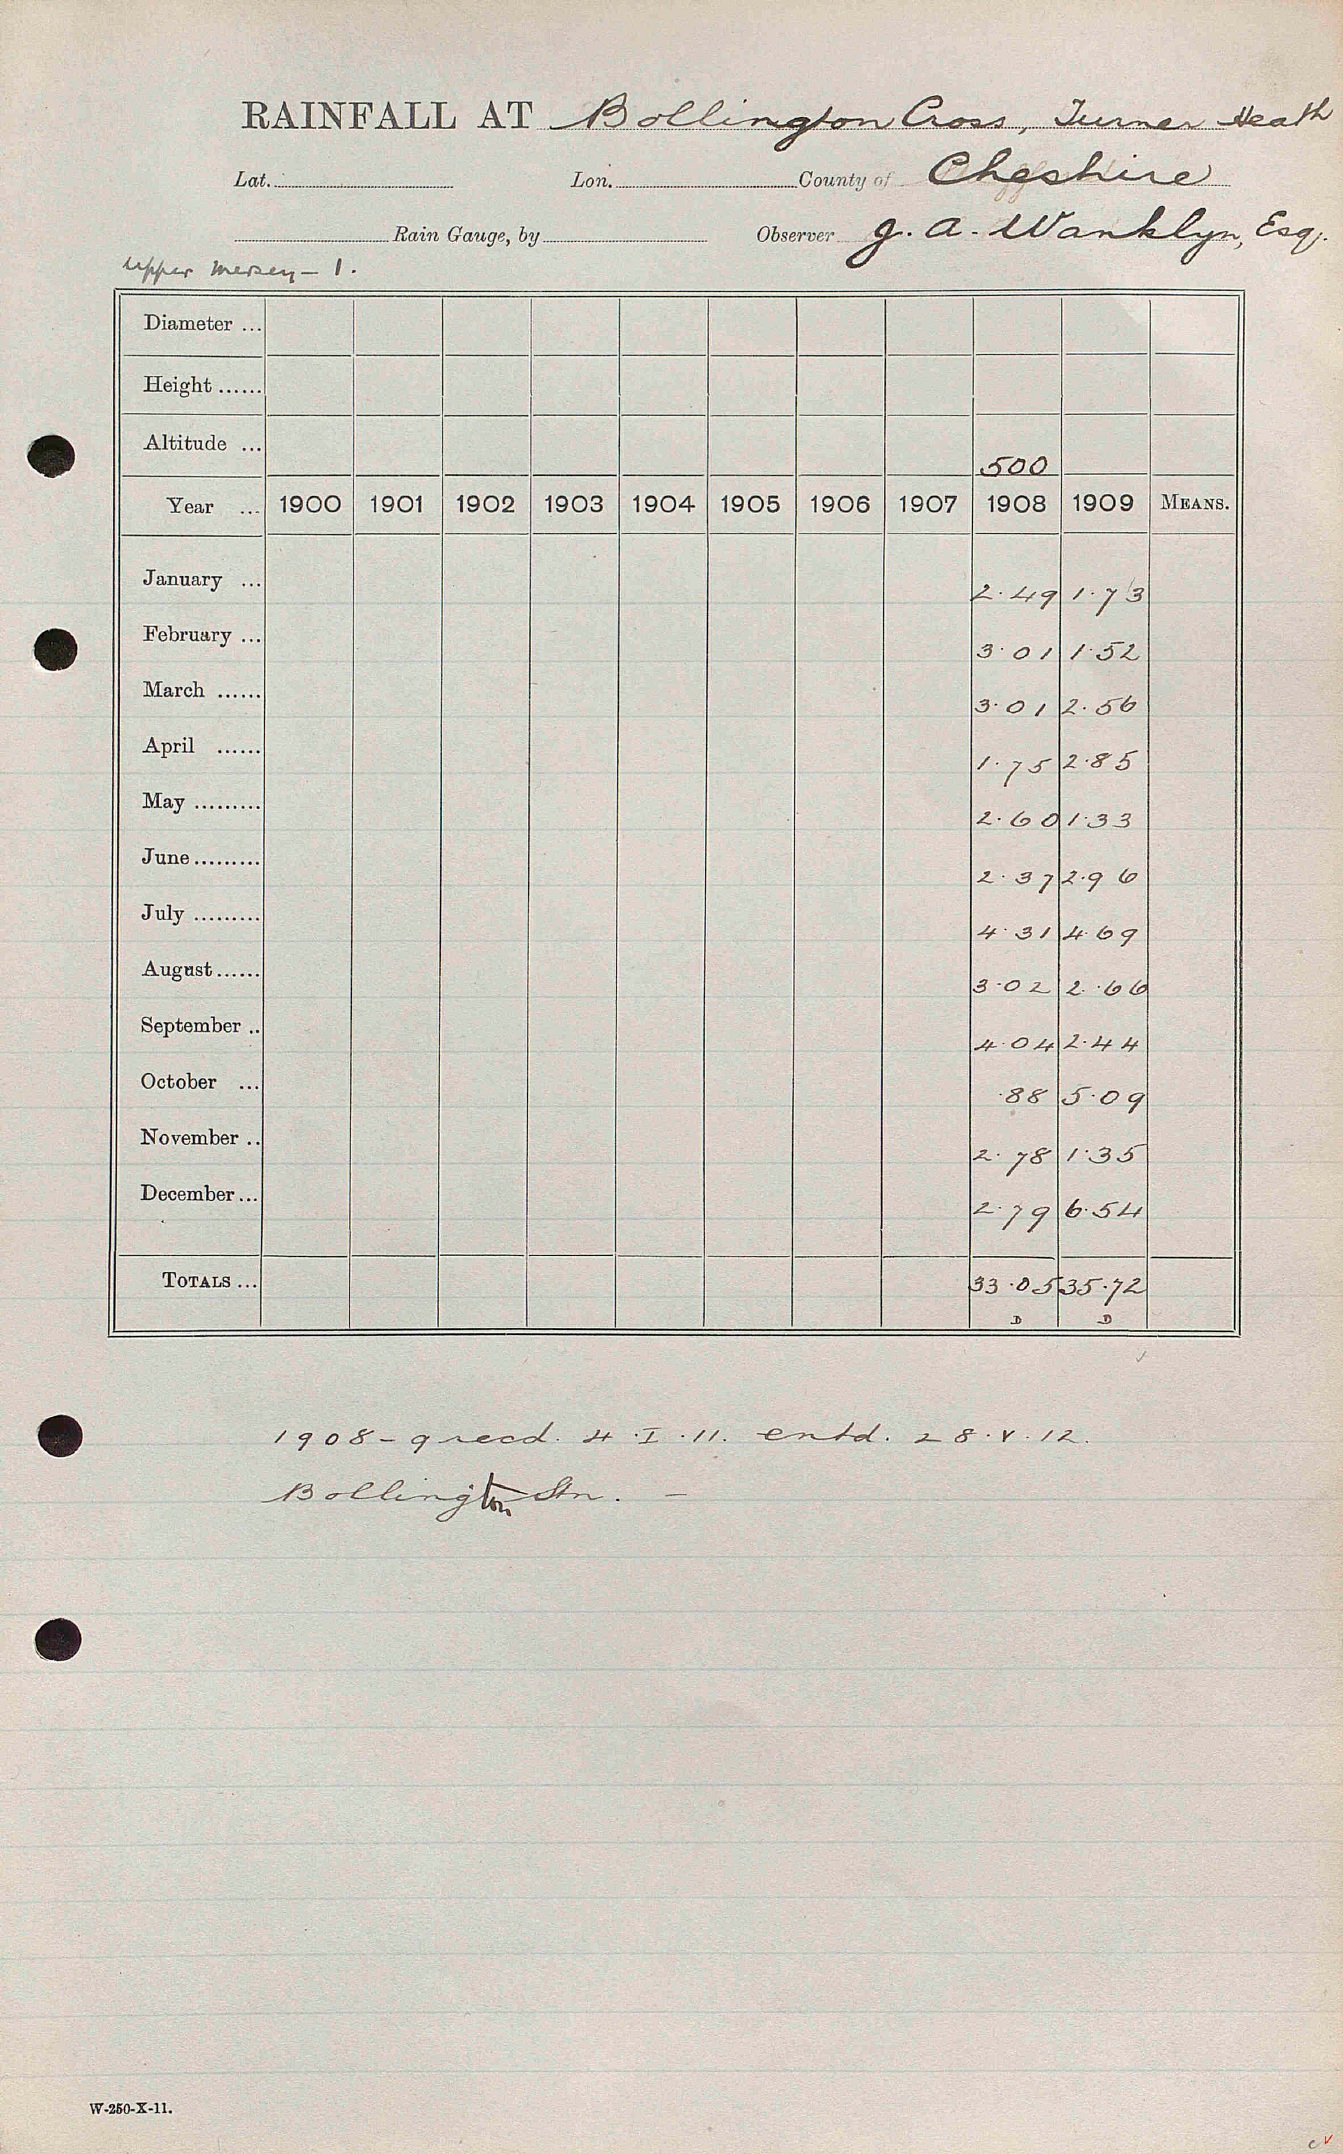 RAINFALL AT Bollington Cross, Turner Heath
Lat. Lon. County of Cheshire
Rain Gauge, by Observer J. A. Wanklyn, Esq.
Upper Mersey - 1.
Diameter ...
Height ......
Altitude ... 500
Year ... 1900 1901 1902 1903 1904 1905 1906 1907 1908 1909 MEANS.
January ... 2.49 1.73
February ... 3.01 1.52
March ...... 3.01 2.56
April ...... 1.75 2.85
May ......... 2.60 1.33
June ......... 2.37 2.96
July ......... 4.31 4.69
August ...... 3.02 2.66
September .. 4.04 2.44
October ... .88 5.09
November .. 2.78 1.35
December ... 2.79 6.54
TOTALS ... 33.05 35.72
D D
1908-9 recd. 4.I.11. entd. 28.V.12.
Bollington Stn. -
W-250-X-11.